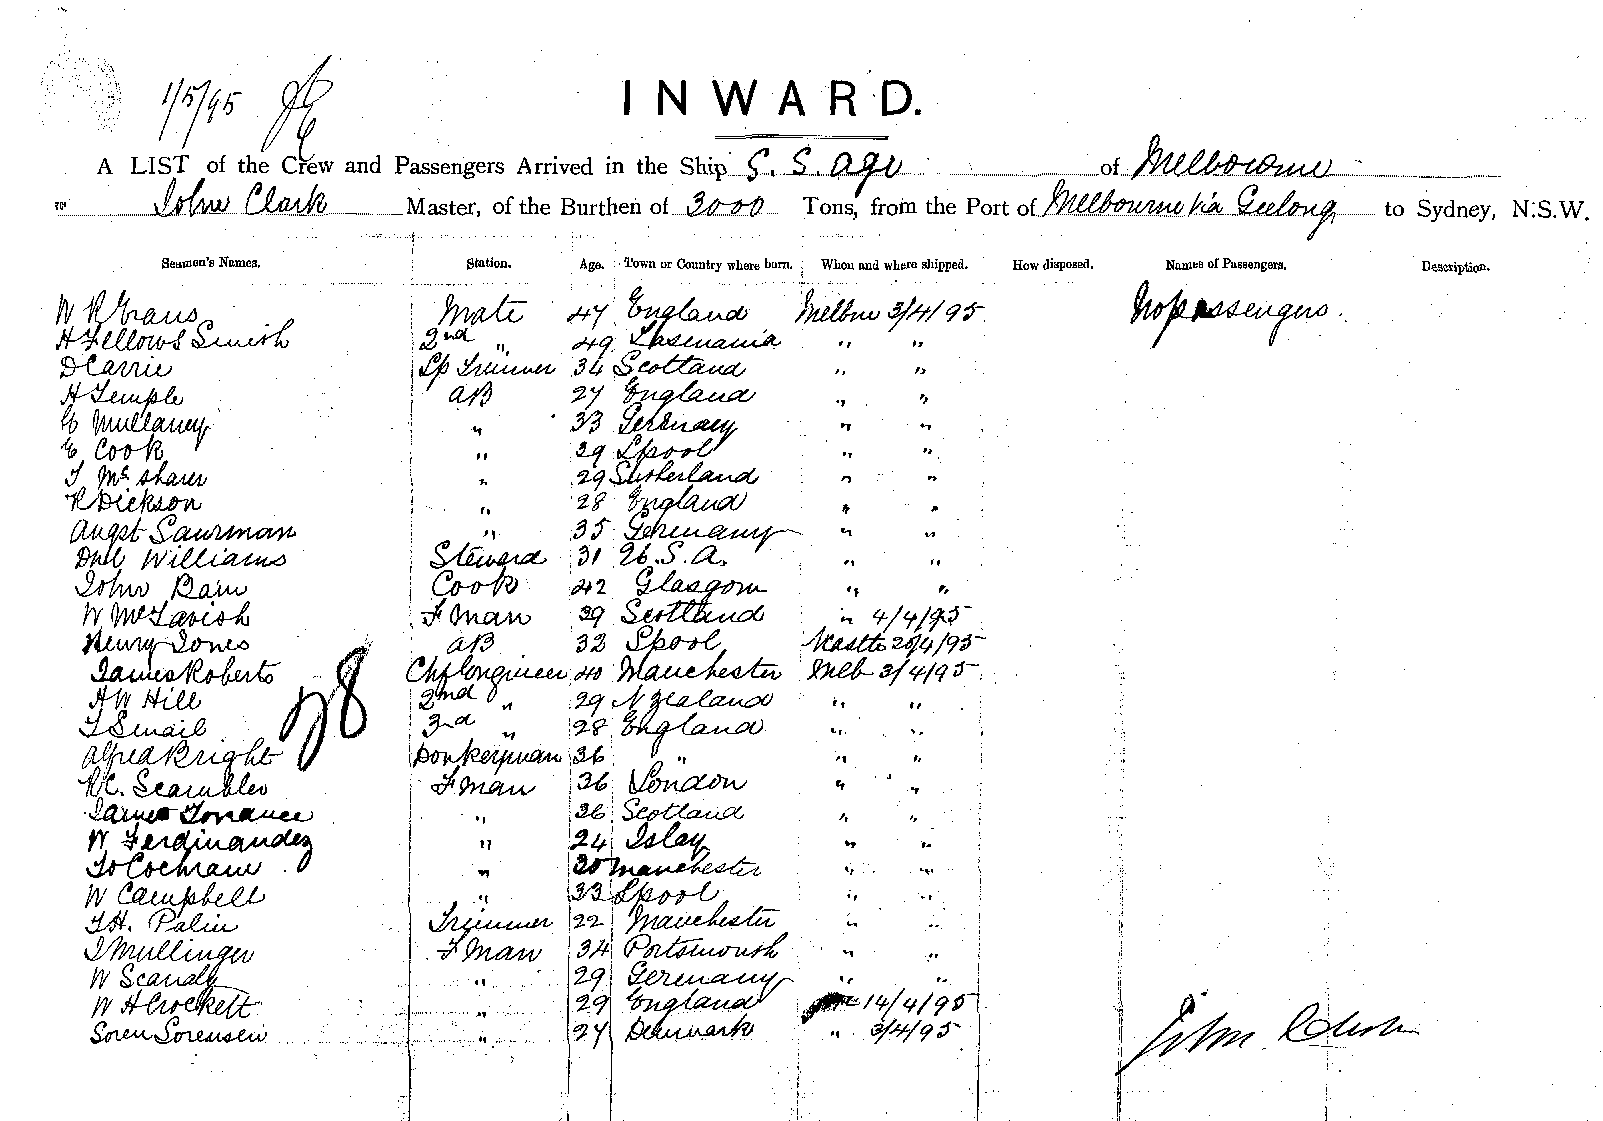 1/5/95
INWARD.
A LIST of the Crew and Passengers Arrived in the Ship S. S. Age of Melbourne
John Clark Master, of the Burthen of 3000 Tons, from the Port of Melbourne via Geelong to Sydney, N.S.W.
Seamen's Names. Station. Age. Town or Country where born. When and where shipped. How disposed. Names of Passengers. Description.
W R Evans Mate 47 England Melbne 3/4/95 No passengers.
H Fellows Smith 2nd " 49 Tasmania " "
D Carrie Lp Trimmer 34 Scotland " "
H Temple AB 27 England " "
E Mullaney " 33 Germany " "
E Cook " 29 Lpool " "
T McSharer " 29 Sutherland " "
R Dickson " 28 England " "
Angst Saurman " 35 Germany " "
Dnl Williams Steward 31 U.S.A. " "
John Bain Cook 42 Glasgow " "
W McTavish F Man 39 Scotland " 4/4/95
Henry Jones AB 32 Lpool 20/4/95
James Roberts Chf Engineer 40 Manchester Melb 3/4/95
A W Hill 2nd " 29 N Zealand " "
T Smail 3rd " 28 England " "
Alfred Bright Donkeyman 36 " " "
R C. Scambler F Man 36 London " "
James Torrance " 36 Scotland " "
W Ferdinandez " 24 Islay " "
Cochrane " 30 Manchester " "
W Campbell " 33 Lpool " "
T H. Palin Trimmer 22 Manchester " "
J Mullinger F Man 34 Portsmouth " "
W " 29 Germany " "
W H Crockett " 29 England 14/4/95
Soren Sorensen " 27 Denmark " 3/4/95
John Clark